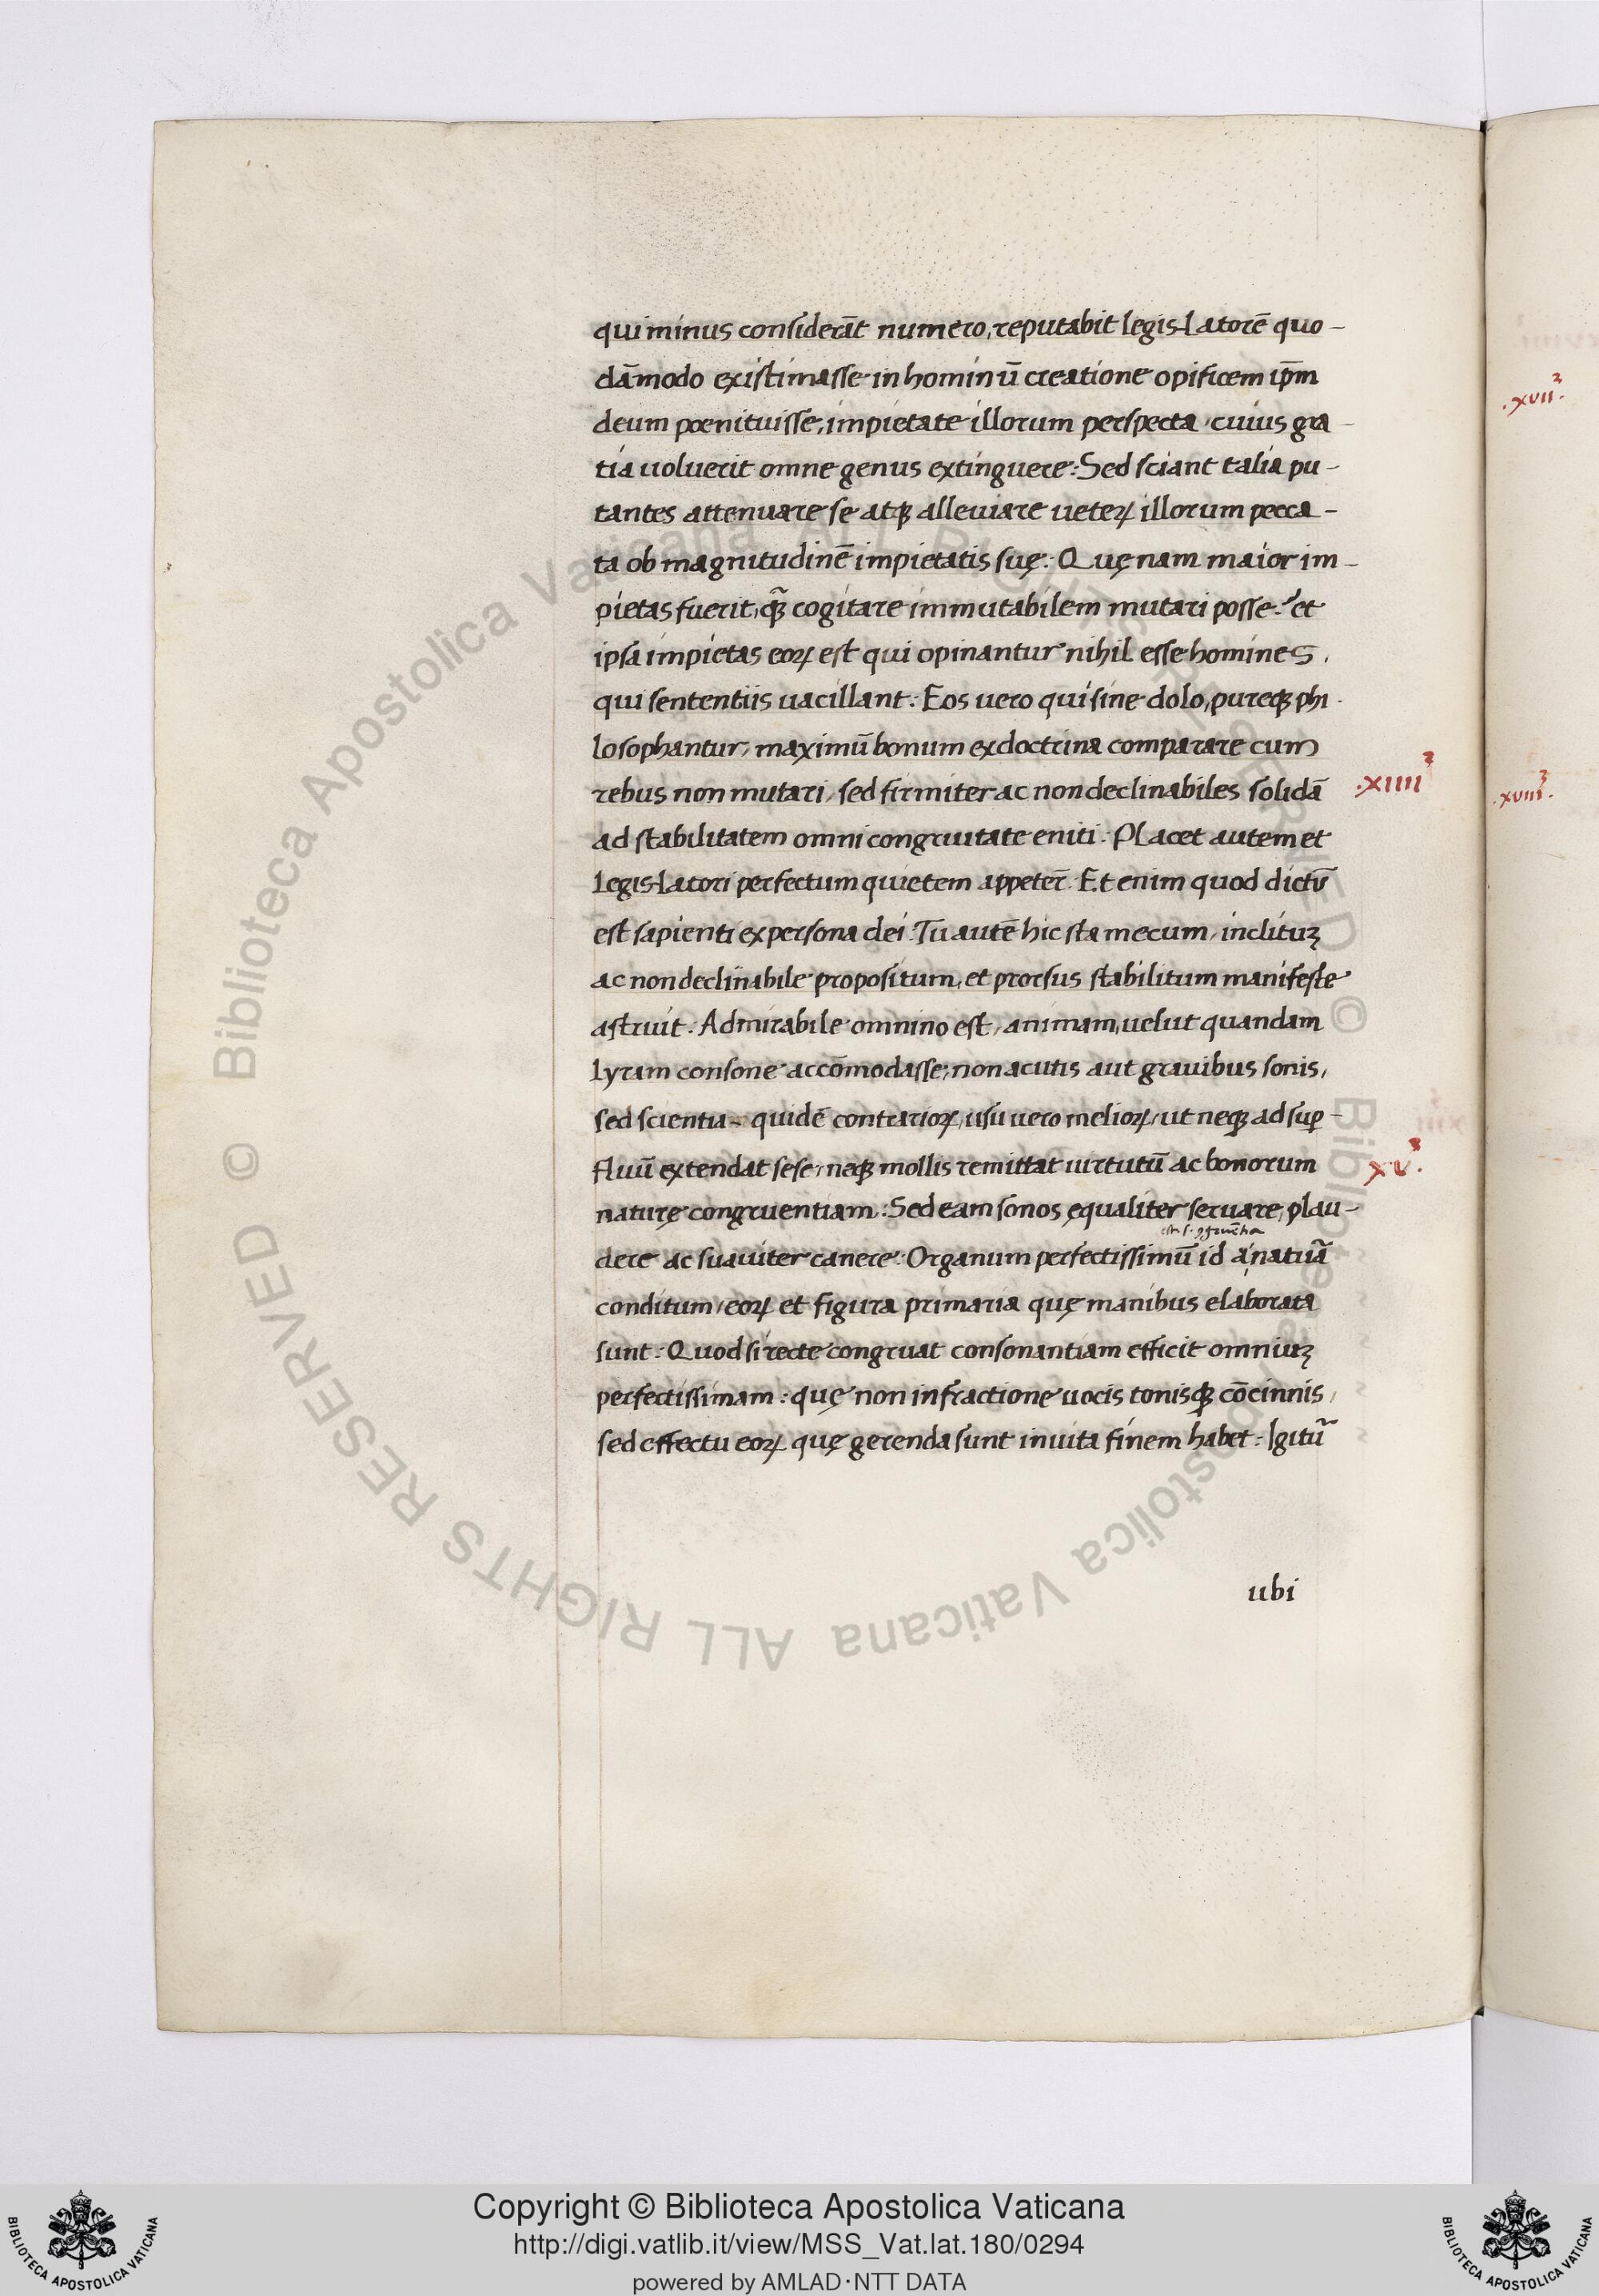 qui minus considerāt numero, reputabit legislatorē quo-
dāmodo existimasse in hominū creatione opificem ip̄m
deum poenituisse, impietate illorum perspecta, cuius gra-
tia uoluerit omne genus extinguere: Sed sciant talia pu-
tantes attenuare se atqꝫ alleuiare ueteꝝ illorum pecca-
ta ob magnitudinē impietatis suę: Quęnam maior im-
pietas fuerit, qꝫ̄ cogitare immutabilem mutari posse? et
ipsa impietas eoꝝ est qui opinantur nihil esse homines,
qui sententiis uacillant: Eos uero qui sine dolo, pureqꝫ phi-
losophantur, maximū bonum ex doctrina comparare cum
rebus non mutari, sed firmiter ac non declinabiles solidā
.XIIII.ᵃ
ad stabilitatem omni congruitate eniti: Placet autem et
legislatori perfectum quietem appeter̄. Et enim quod dictū
est sapienti ex persona dei: Tu autē hic sta mecum, inclituꝫ
ac non declinabile propositum, et prorsus stabilitum manifeste
astruit. Admirabile omnino est, animam, uelut quandam
lyram consone accōmodasse, non acutis aut grauibus sonis,
sed scientia quidē contrarioꝝ, usu uero melioꝝ, ut neqꝫ ad suꝑ-
fluū extendat sese, neqꝫ mollis remittat uirtutū ac bonorum
XV.ᵃ
naturę congruentiam: Sed eam sonos ęqualiter seruare, plau-
dere ac suauiter canere: Organum perfectissimū id a natura
conditum, eoꝝ et figura primaria quę manibus elaborata
sunt: Quod si recte congruat consonantiam efficit omniuꝫ
perfectissimam: quę non in fractione uocis tonisqꝫ cōcinnis,
sed effectu eoꝝ quę gerenda sunt in uita finem habet: Igitū
ubi
.XVII.ᵃ
.XVIII.ᵃ
© Biblioteca Apostolica Vaticana ALL RIGHTS RESERVED © Biblioteca Apostolica Vaticana ALL RIGHTS RESERVED
Copyright © Biblioteca Apostolica Vaticana
http://digi.vatlib.it/view/MSS_Vat.lat.180/0294
powered by AMLAD·NTT DATA
BIBLIOTECA APOSTOLICA VATICANA
BIBLIOTECA APOSTOLICA VATICANA